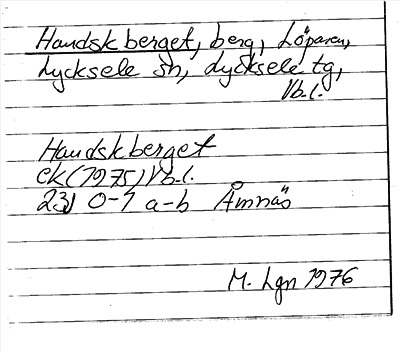 Handskberget, berg, Löparen,
Lycksele sn, Lycksele tg,
Vb.l.
Handskberget
Ek (1975) Vb.l.
23J 0-1 a-b Åmnäs
M. Lgn 1976